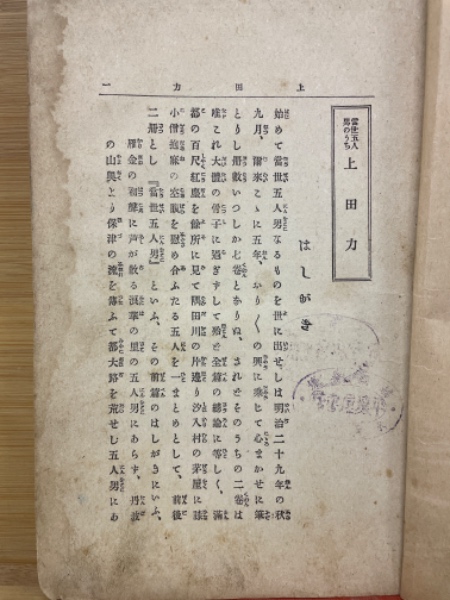 上田力
一
當世五人男のうち
上田力
はしがき
始めて當世五人男なるものを世に出せしは明治二十九年の秋
九月、爾來こゝに五年、をり〱の興に乘じて心まかせに筆
とりし册數いつしか七卷となりぬ、されどそのうちの二卷は
唯これ大體の骨子に過ぎずして殆ど全篇の總論に等しく、滿
都の百尺紅塵を餘所に見て隅田川の片邊り汐入村の茅屋に
小僧達麻の空腹を慰め合ふたる五人を一まとめとして、前後
二册とし『當世五人男』といふ、その前篇のはしがきにいふ、
雁金の羽に声が散る浪華の里の五人男にあらず、丹波
の山奧より保津の流を傳ふて都大路を荒せし五人男にあ